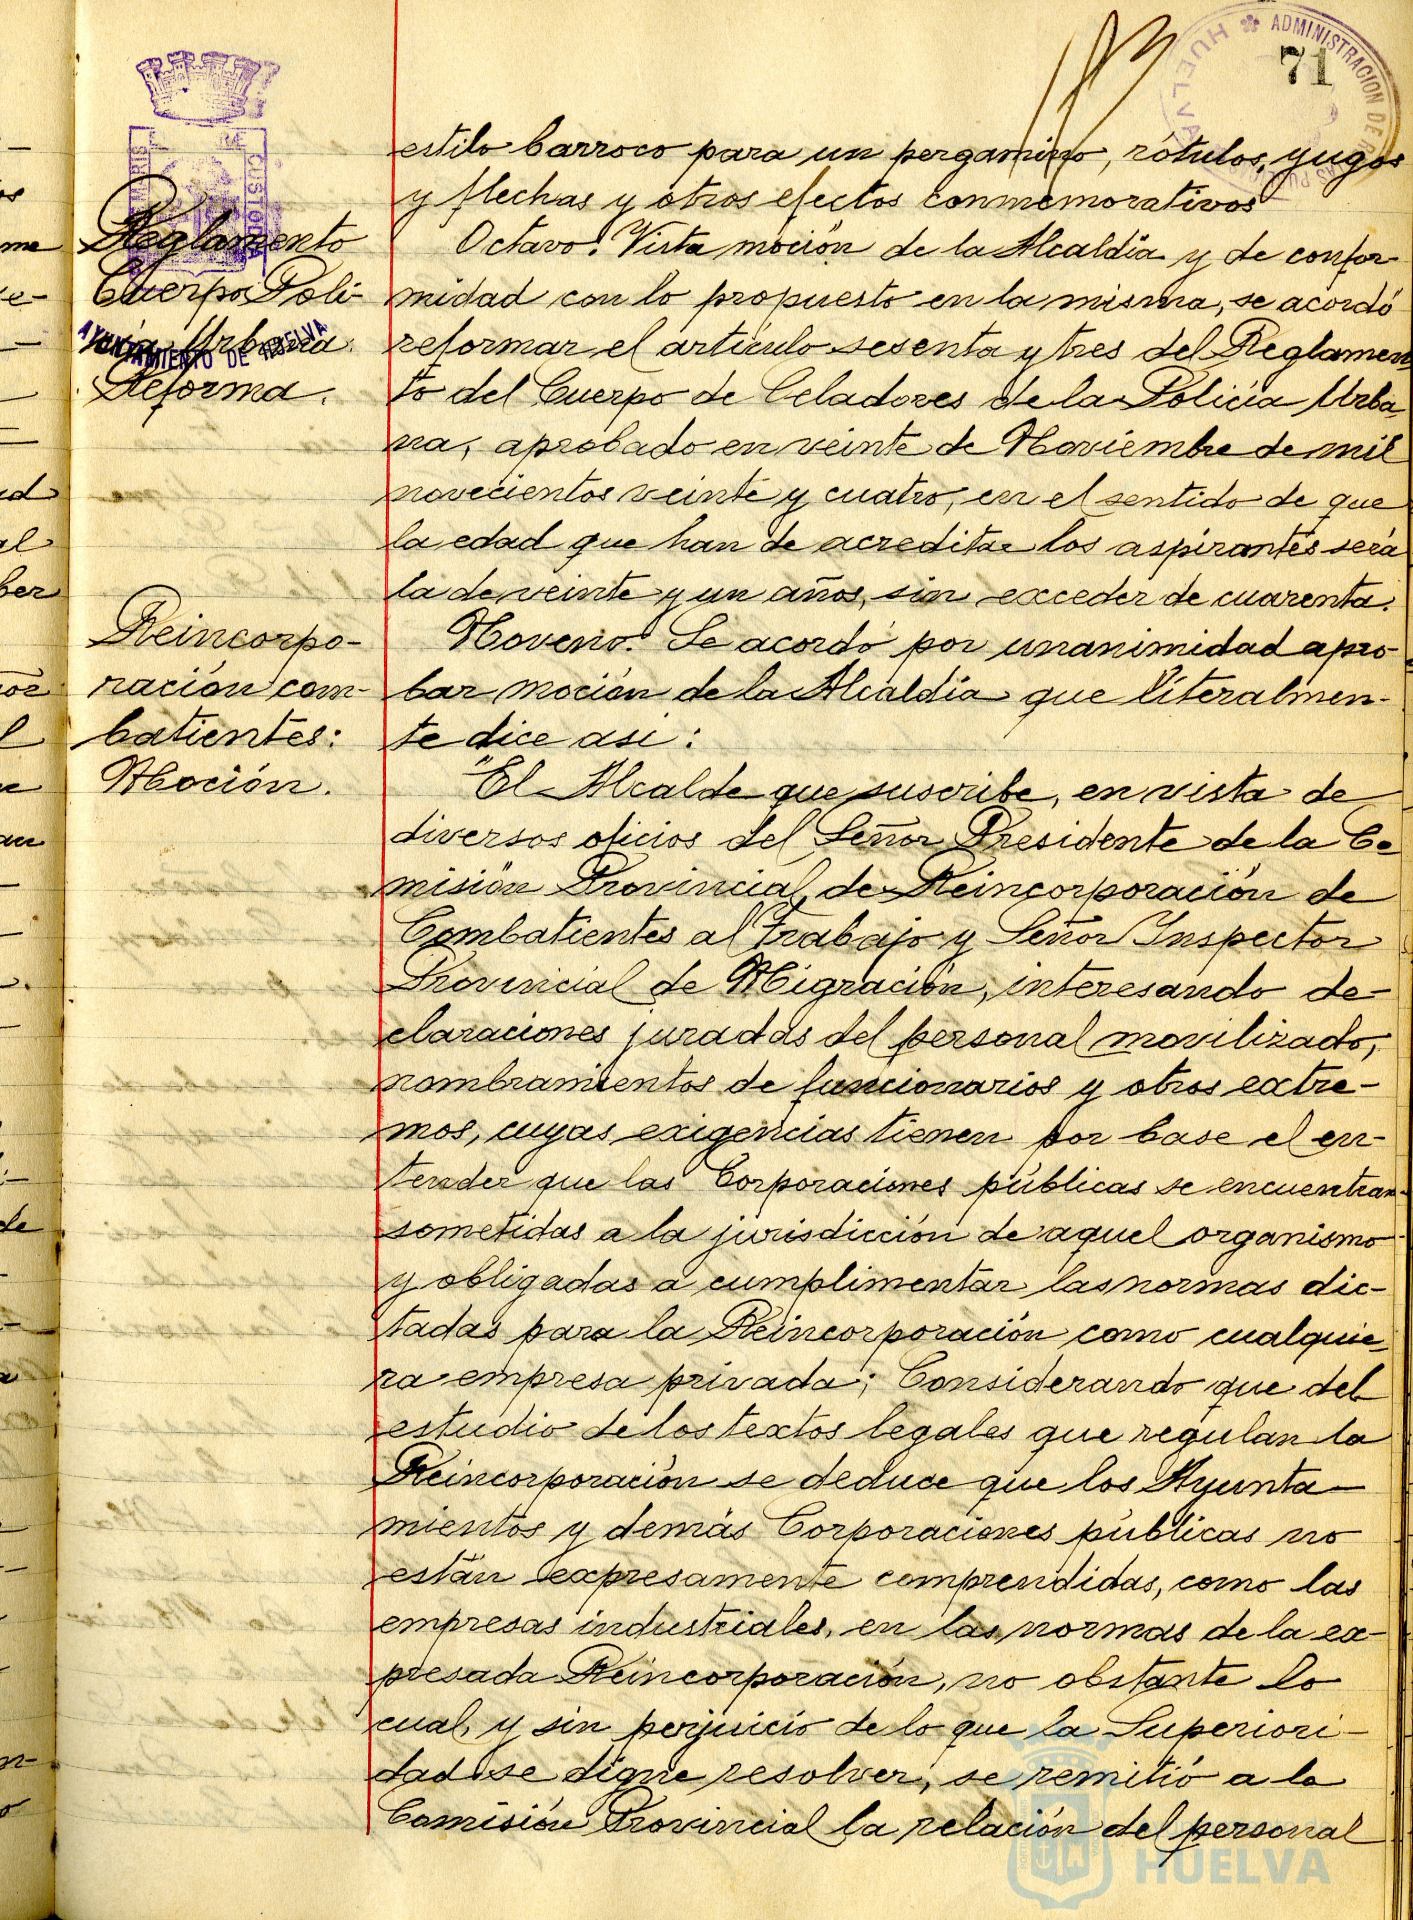 71
ADMINISTRACION DE RENTAS PUBLICAS
HUELVA
CUSTODIA
AYUNTAMIENTO DE HUELVA
Reglamento
Cuerpo Poli-
cía Urbana.
Reforma.
estilo barroco para un pergamino, rótulos, yugos
y flechas y otros efectos conmemorativos
Octavo: Vista moción de la Alcaldía y de confor-
midad con lo propuesto en la misma, se acordó
reformar el artículo sesenta y tres del Reglamen-
to del Cuerpo de Celadores de la Policía Urba-
na, aprobado en veinte de Noviembre de mil
novecientos veinte y cuatro, en el sentido de que
la edad que han de acreditar los aspirantes será
la de veinte y un años, sin exceder de cuarenta.
Reincorpo-
ración com-
batientes:
Moción.
Noveno: Se acordó por unanimidad apro-
bar moción de la Alcaldía que literalmen-
te dice asi:
"El Alcalde que suscribe, en vista de
diversos oficios del Señor Presidente de la Co-
misión Provincial de Reincorporación de
Combatientes al Trabajo y Señor Inspector
Provincial de Migración, interesando de-
claraciones juradas del personal movilizado,
nombramientos de funcionarios y otros extre-
mos, cuyas exigencias tienen por base el en-
tender que las Corporaciones públicas se encuentran
sometidas a la jurisdicción de aquel organismo
y obligadas a cumplimentar las normas dic-
tadas para la Reincorporación como cualquie-
ra empresa privada; Considerando que del
estudio de los textos legales que regulan la
Reincorporación se deduce que los Ayunta-
mientos y demás Corporaciones públicas no
están expresamente comprendidas, como las
empresas industriales, en las normas de la ex-
presada Reincorporación, no obstante lo
cual, y sin perjuicio de lo que la Superiori-
dad se digne resolver, se remitió a la
Comisión Provincial la relación del personal
HUELVA